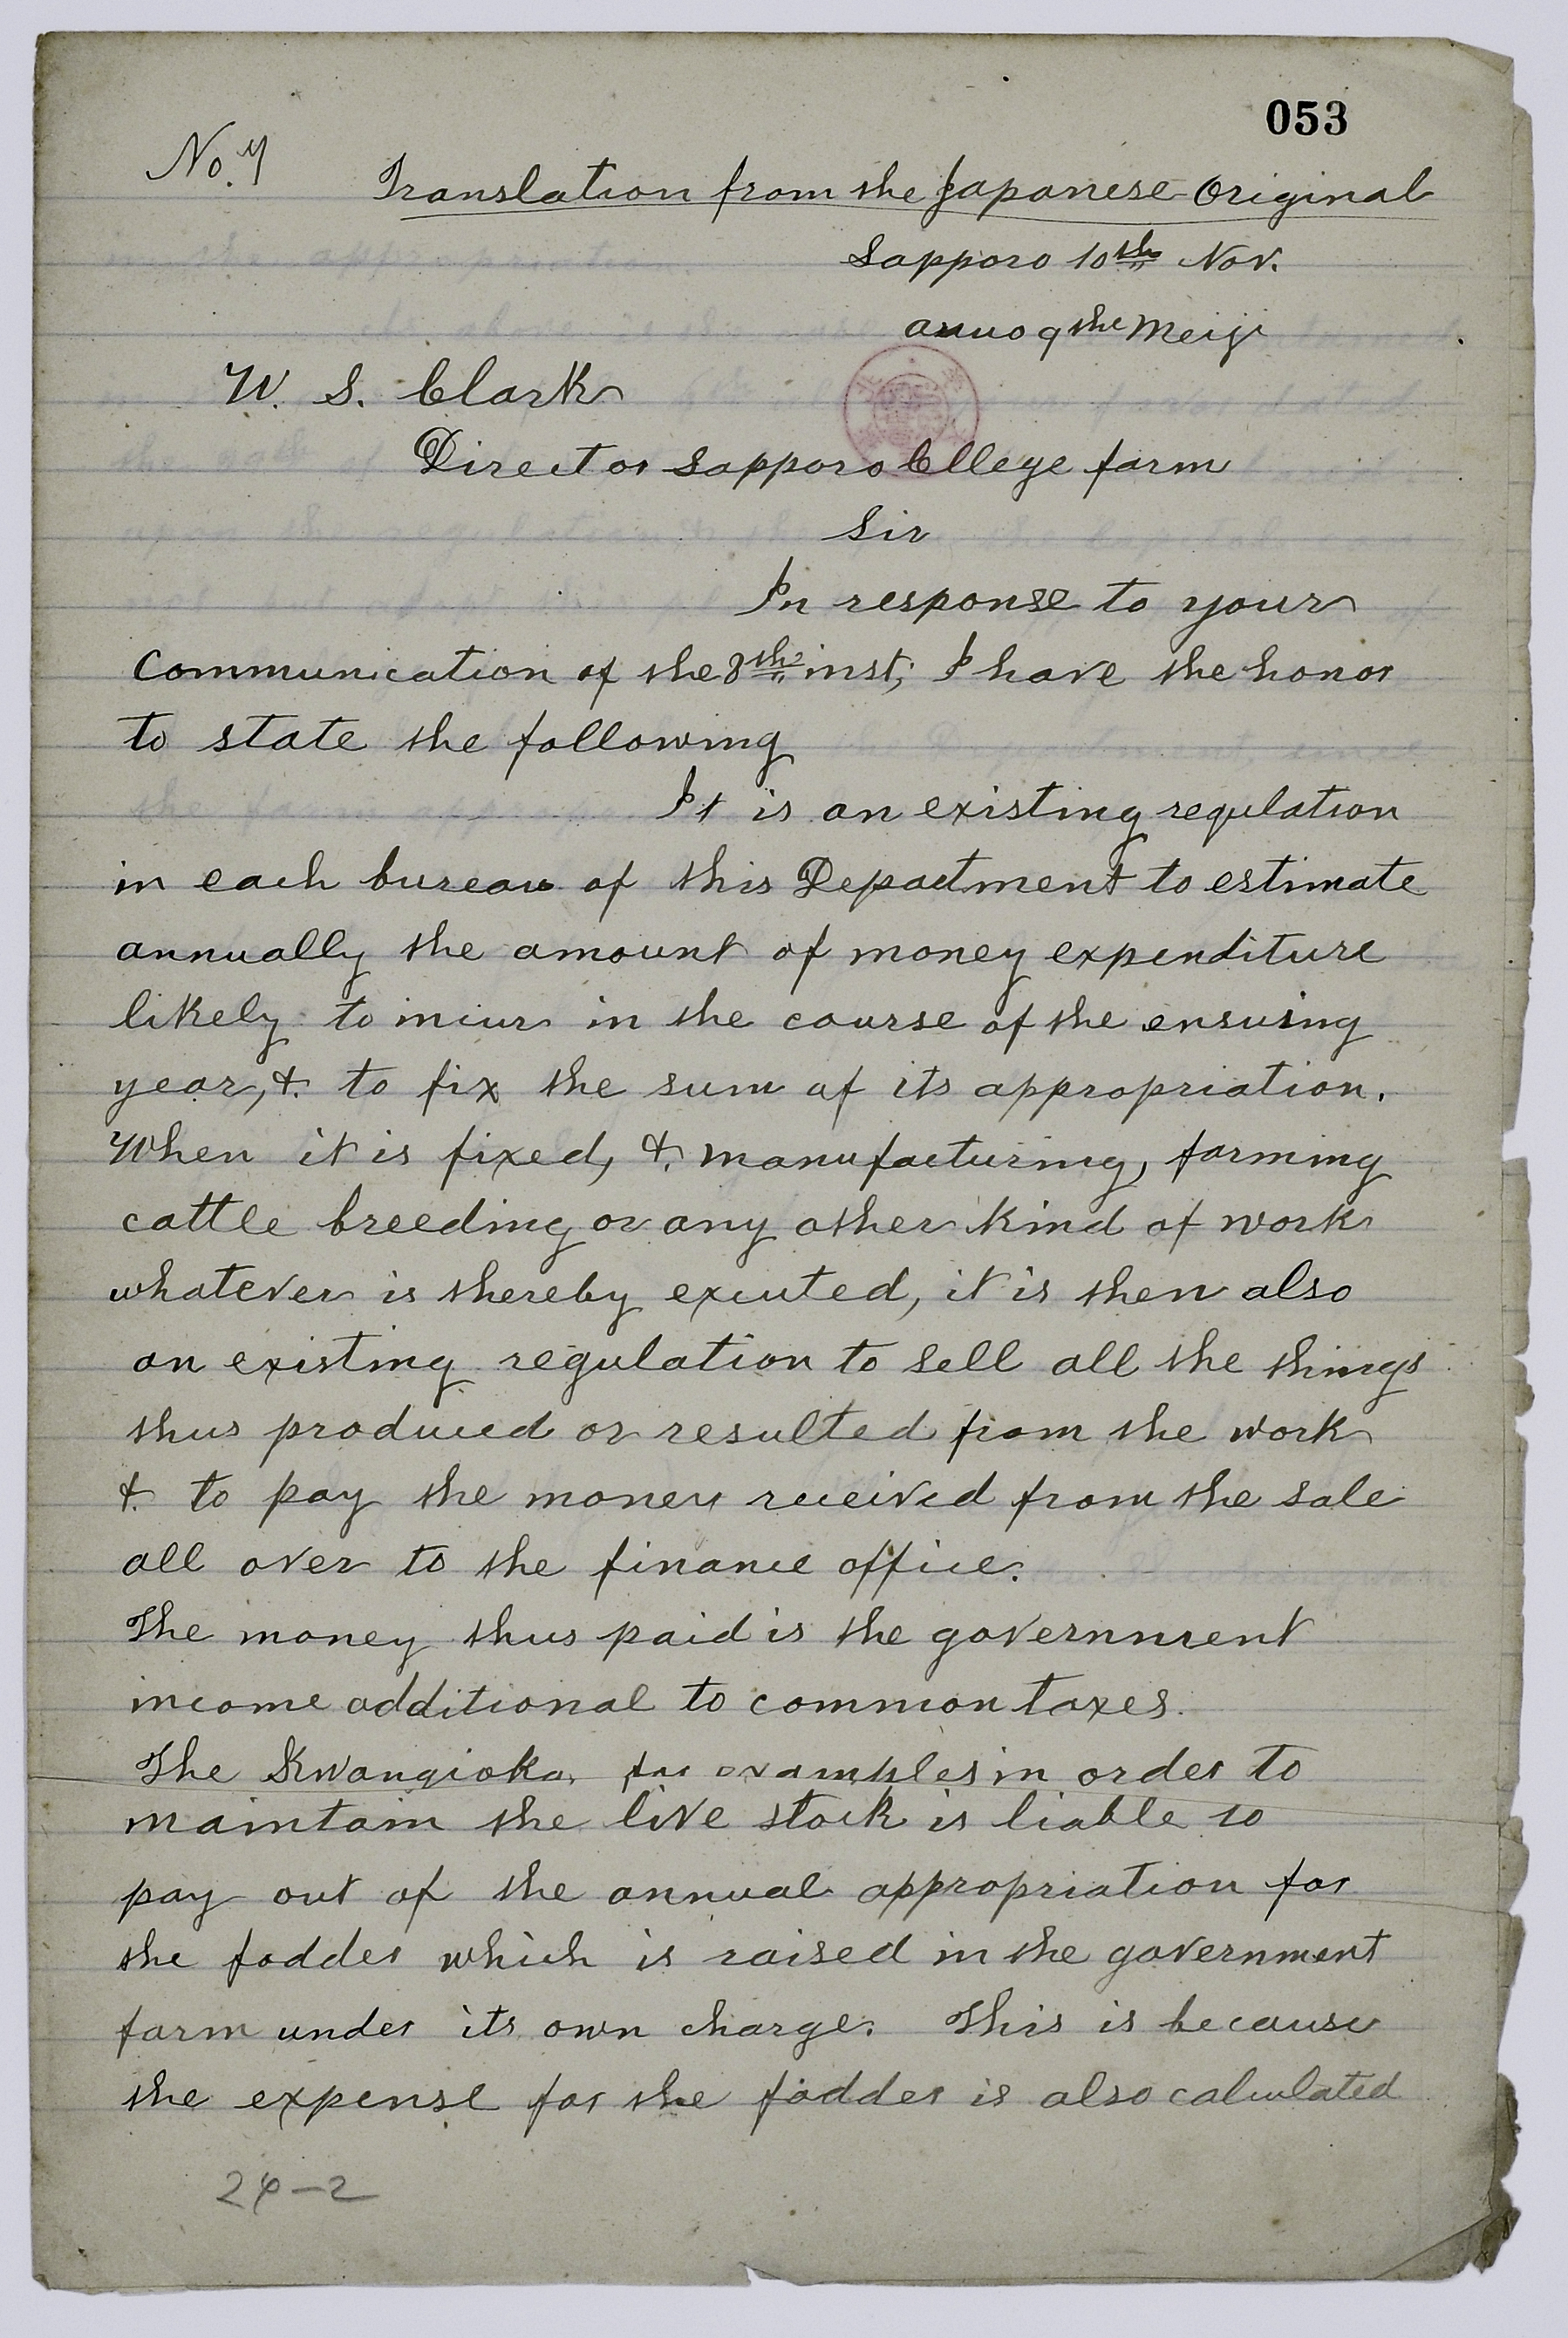 053
No. 7
Translation from the Japanese Original
Sapporo 10th Nov.
anno 9th Meiji
W. S. Clark
Director Sapporo Cllege farm
Sir
In response to your
Communication of the 8th inst; I have the honor
to state the following
It is an existing regulation
in each bureau of this Department to estimate
annually the amount of money expenditure
likely to incur in the course of the ensuing
year, &. to fix the sum of its appropriation.
When it is fixed, &. manufacturing, farming
cattle breeding or any other kind of work
whatever is thereby excuted, it is then also
an existing regulation to sell all the things
thus produced or resulted from the work
&. to pay the money received from the sale
all over to the finance office.
The money thus paid is the government
income additional to common taxes.
The Kwangioka, for examples in order to
maintain the live stock is liable to
pay out of the annual appropriation for
the fodder which is raised in the government
farm under its own charge. This is because
the expense for the fodder is also calculated
24-2